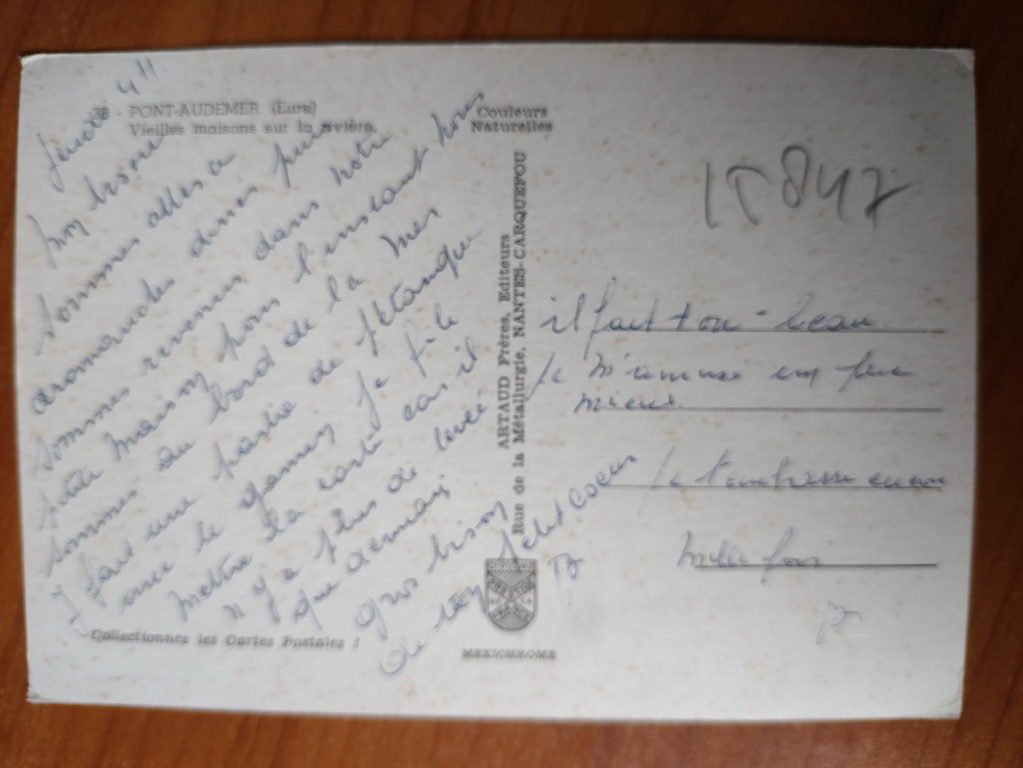 jeudi 4H
36 - PONT-AUDEMER (Eure)
Vieilles maisons sur la rivière.
Couleurs
Naturelles
Mon bison
Sommes allés a
dromandes diner puis
sommes revenus dans notre
petite maison pour l'instant nous
sommes au bord de la mer
J fait une partie de pétanque
avec le gamin je file
mettre la carte car il
n y a plus de levée
que demain
gros bison
de ton petit coeur
B
ARTAUD Frères, Editeurs
Rue de la Métallurgie, NANTES-CARQUEFOU
Collectionnez les Cartes Postales !
MEXICHROME
15847
il fait beau
Je m'amuse un peu
mieux.
Je t'embrasse encore
mille fois
B